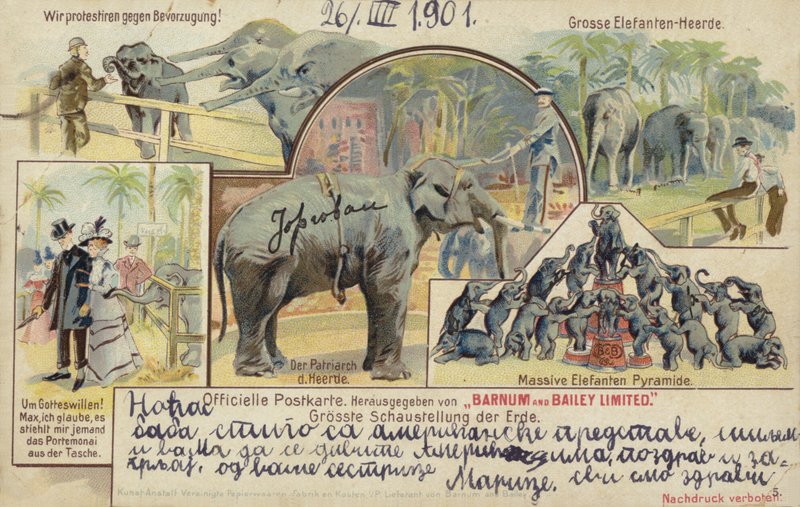 26/III 1901.
Wir protestiren gegen Bevorzugung!
Grosse Elefanten-Heerde.
Јоргован
Der Patriarch
d. Heerde.
B&B
Massive Elefanten Pyramide.
Um Gotteswillen!
Max, ich glaube, es
stiehlt mir jemand
das Portemonai
aus der Tasche.
Officielle Postkarte. Herausgegeben von „BARNUM AND BAILEY LIMITED."
Grösste Schaustellung der Erde.
баба стиго са американске представе, шиљем
и вама да се дивите Америк поздрав и за
од ваше сестрице Марице. сви смо здрави
Kunst-Anstalt Vereinigte Papierwaaren Fabriken Lieferant von Barnum and Bailey
5.
Nachdruck verboten.